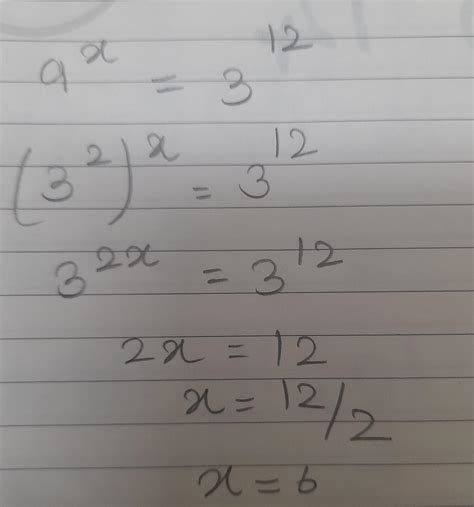 9^x = 3^12
(3^2)^x = 3^12
3^2x = 3^12
2x = 12
x = 12/2
x = 6